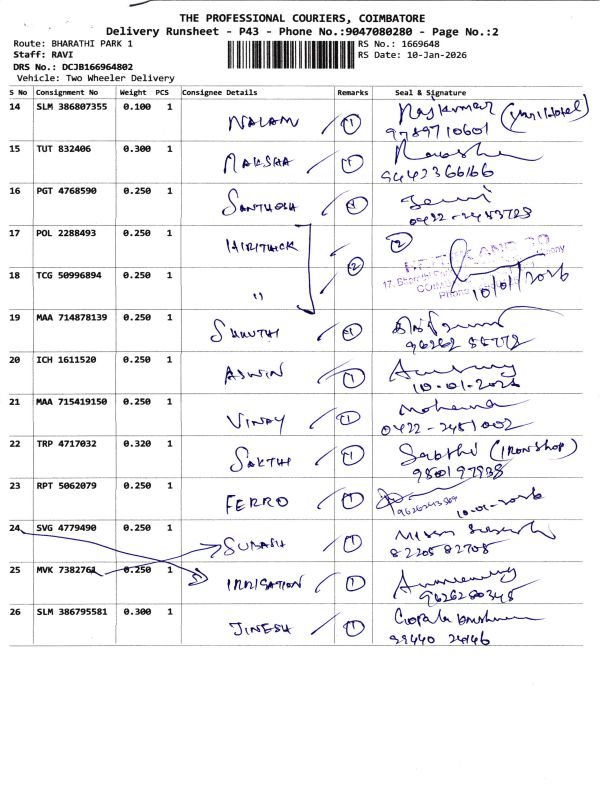 THE PROFESSIONAL COURIERS, COIMBATORE
Delivery Runsheet - P43 - Phone No.:9047080280 - Page No.:2
Route: BHARATHI PARK 1 RS No.: 1669648
Staff: RAVI RS Date: 10-Jan-2026
DRS No.: DCJB166964802
Vehicle: Two Wheeler Delivery
S No Consignment No Weight PCS Consignee Details Remarks Seal & Signature
14 SLM 386807355 0.100 1 NALAM 1 Rajkumar
9789710601
15 TUT 832406 0.300 1 MAKSHA 1
9442366166
16 PGT 4768590 0.250 1 SANTHOSH 1
0422-2453728
17 POL 2288493 0.250 1 HIRITHICK 2 2
18 TCG 50996894 0.250 1 " 10/01/2026
19 MAA 714878139 0.250 1 SHRUTHI 1
96262 55772
20 ICH 1611520 0.250 1 ASWIN 1
10-01-2026
21 MAA 715419150 0.250 1 VINAY 1 Mohana
0422-2451002
22 TRP 4717032 0.320 1 SAKTHI 1 Sakthi (Iron Shop)
23 RPT 5062079 0.250 1 FERRO 1
10-01-2026
24 SVG 4779490 0.250 1 SUMASH 1
8220582708
25 MVK 7382761 0.250 1 IRRIGATION 1
9626280345
26 SLM 386795581 0.300 1 JINESH 1 Gopala krishnan
99440 24146